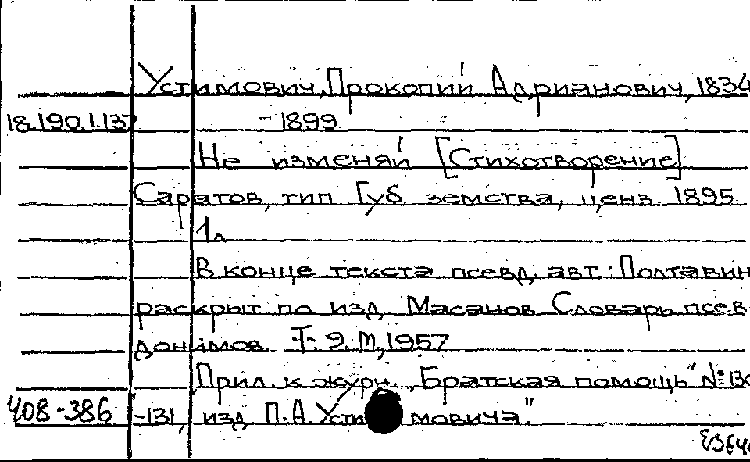 Устимович, Прокопий Адрианович, 1834
18.190.1.137 -1899
Не изменяй [Стихотворение]
Саратов, тип Губ земства, ценз 1895
1л
В конце текста псевд. авт.: Полтавин
раскрыт по изд. Масанов Словарь псев
донимов. Т. 2. М, 1957
Прил. к журн. „Братская помощь" № 130
-131, изд П.А. Устимовича."
408-386